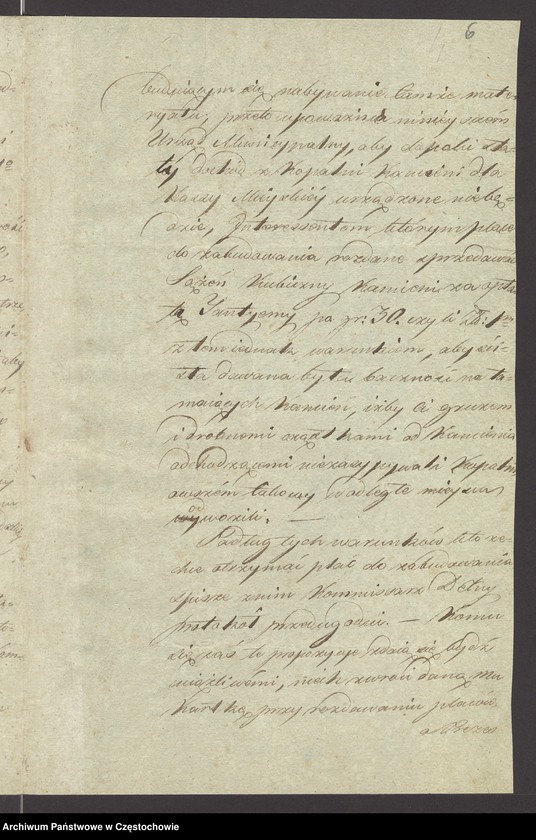 6
budującym się nabywanie tamże mate-
ryału, przeto upoważnia niniejszem
Urząd Municypalny, aby dopóki sta-
ły dochód z Kopalni Kamieni dla
Kassy Mieyskiéy urządzone niebę-
dzie, Interessentom którym place
do zabudowania rozdane sprzedawał
Sążeń Kubiczny Kamieni za opła-
tą Tantyemy po gr: 30. czyli Zł: 1no
z tém iednak warunkiem, aby ści-
sła dawana była baczność na ła-
miących Kamień, iżby Ci gruzem
i drobnemi cząstkami od Kamienia
odchodzącemi niezasypywali Kopalni
owszém takowy w odległe mieysca
odwozili. —
Podług tych warunków kto ze-
chce otrzymać plac do zabudowania
spisze z nim Kommissarz Delny
protokół przedugodni. — Komu
się zaś te propozycye zdaią się bydź
uciążliwémi, niech zwróci daną mu
Kartkę przy rozdawaniu placów
Archiwum Państwowe w Częstochowie